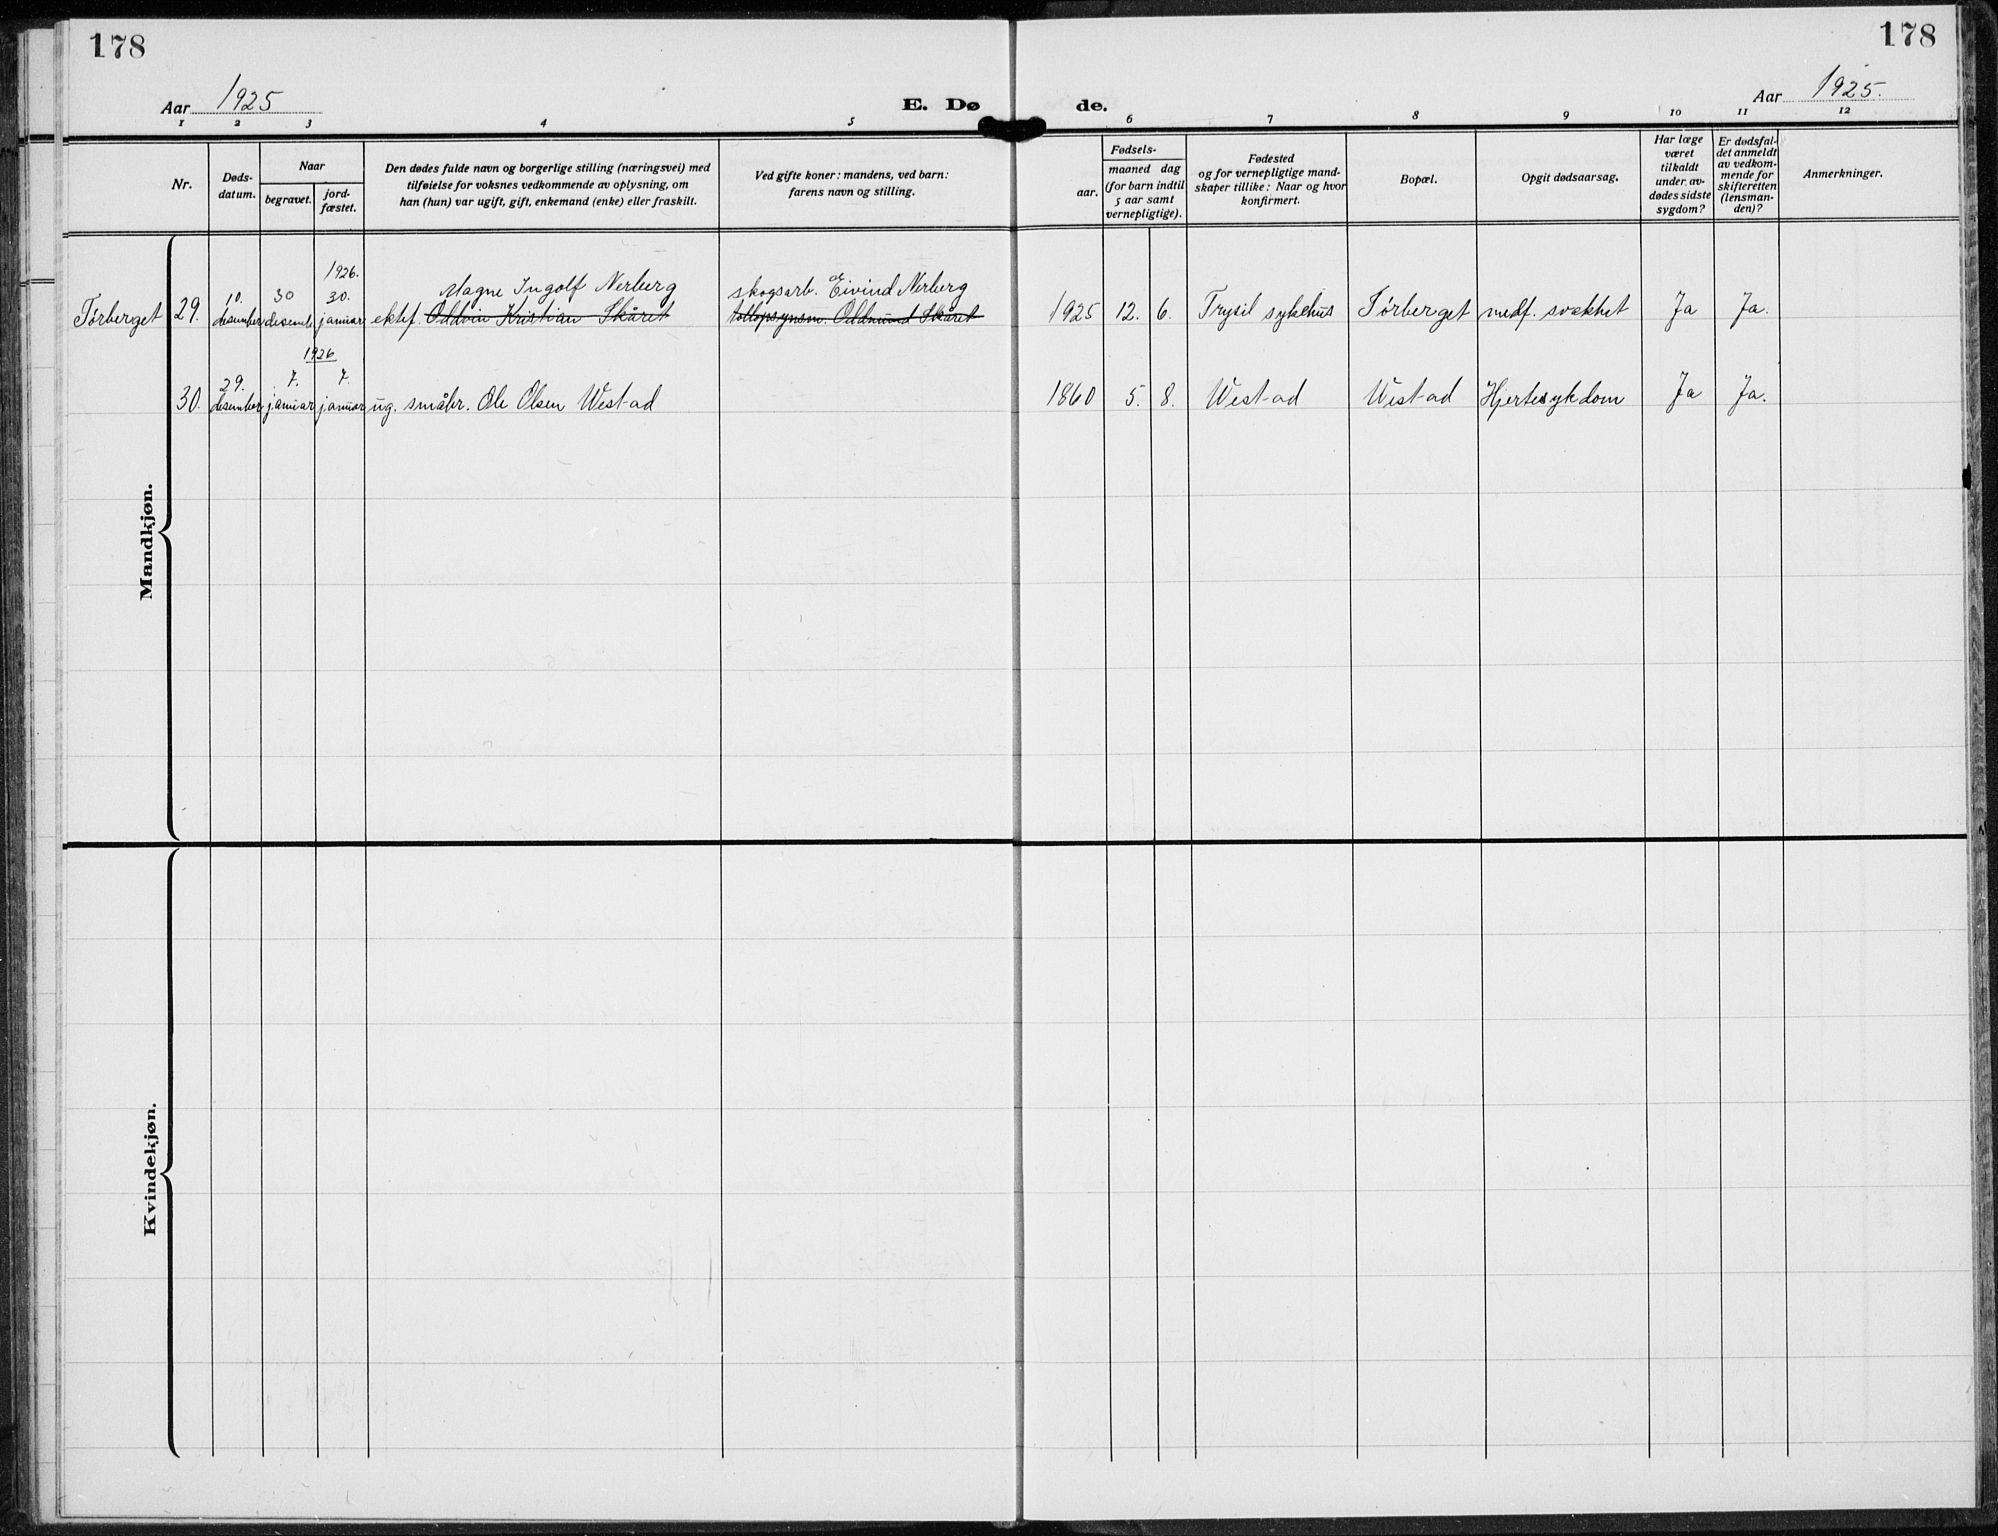 178
178
Aar 1925
E. Dø
de.
Aar 1925.
1 2 3 4 5 6 7 8 9 10 11 12
Nr.
Døds-
datum.
Naar
begravet.
jord-
fæstet.
Den dødes fulde navn og borgerlige stilling (næringsvei) med
tilføielse for voksnes vedkommende av oplysning, om
han (hun) var ugift, gift, enkemand (enke) eller fraskilt.
Ved gifte koner: mandens, ved barn:
farens navn og stilling.
Fødsels-
aar.
maaned dag
(for barn indtil
5 aar samt
vernepligtige).
Fødested
og for vernepligtige mand-
skaper tillike: Naar og hvor
konfirmert.
Bopæl.
Opgit dødsaarsag.
Har læge
været
tilkaldt
under av-
dødes sidste
sygdom?
Er dødsfal-
det anmeldt
av vedkom-
mende for
skifteretten
(lensman-
den)?
Anmerkninger.
1926.
10. 30 30. Magne Ingolf Nerberg skogsarb. Eivind Nerberg
Tørberget 29. desember desemb. januar ektef. Oddvin Kristian Skåret tollopsynsm. Oddmund Skåret 1925 12. 6. Trysil sykehus Tørberget medf. svakhet Ja Ja.
1926
29. 7. 7.
30. desember januar januar ug. småbr. Ole Olsen Westad 1860 5. 8. Westad Westad Hjertesykdom Ja Ja.
Mandkjøn.
Kvindekjøn.